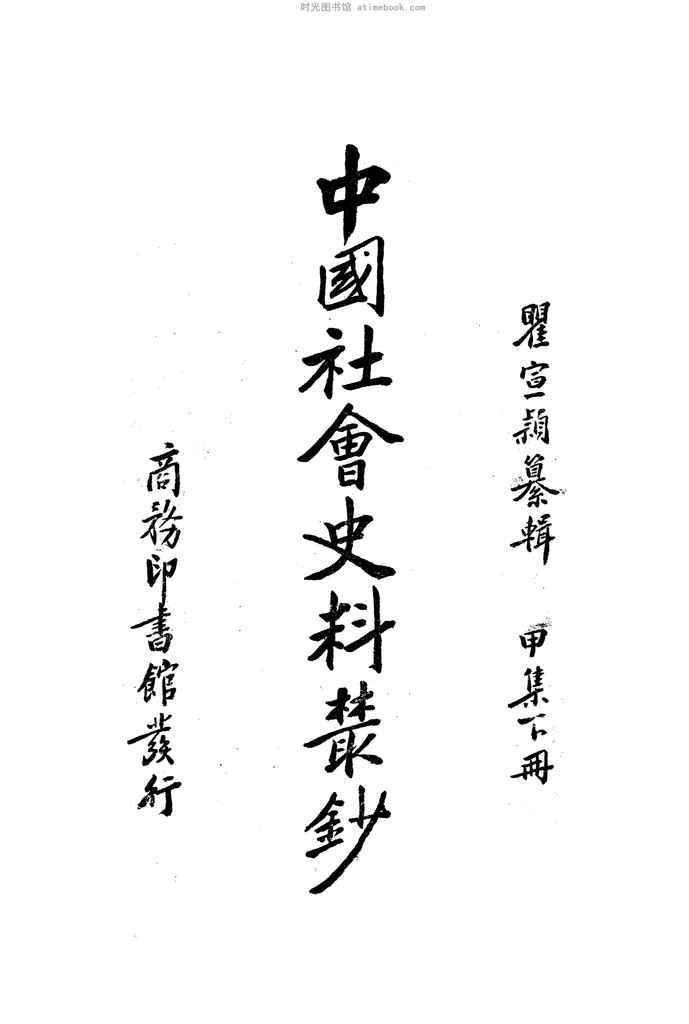 时光图书馆 atimebook.com
瞿宣穎纂輯 甲集下冊
中國社會史料叢鈔
商務印書館發行